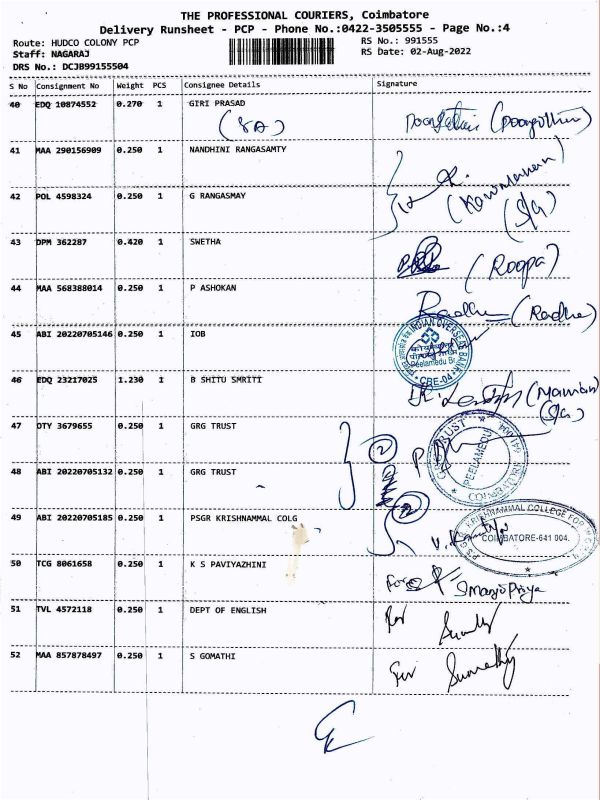 THE PROFESSIONAL COURIERS, Coimbatore
Delivery Runsheet - PCP - Phone No.:0422-3505555 - Page No.:4
Route: HUDCO COLONY PCP RS No.: 991555
Staff: NAGARAJ RS Date: 02-Aug-2022
DRS No.: DCJB99155504
S No Consignment No Weight PCS Consignee Details Signature
40 EDQ 10874552 0.270 1 GIRI PRASAD
41 MAA 290156909 0.250 1 NANDHINI RANGASAMTY
42 POL 4598324 0.250 1 G RANGASMAY
43 DPM 362287 0.420 1 SWETHA (Roopa)
44 MAA 568388014 0.250 1 P ASHOKAN Radha (Radha)
45 ABI 20220705146 0.250 1 IOB
INDIAN OVERSEAS BANK
Peelamedu Br
CBE-04
46 EDQ 23217025 1.230 1 B SHITU SMRITI
47 DTY 3679655 0.250 1 GRG TRUST 2
TRUST
PEELAMEDU
48 ABI 20220705132 0.250 1 GRG TRUST
49 ABI 20220705185 0.250 1 PSGR KRISHNAMMAL COLG 2
KRISHNAMMAL COLLEGE FOR
COIMBATORE-641 004.
50 TCG 8061658 0.250 1 K S PAVIYAZHINI for SManjuPriya
51 TVL 4572118 0.250 1 DEPT OF ENGLISH
52 MAA 857878497 0.250 1 S GOMATHI